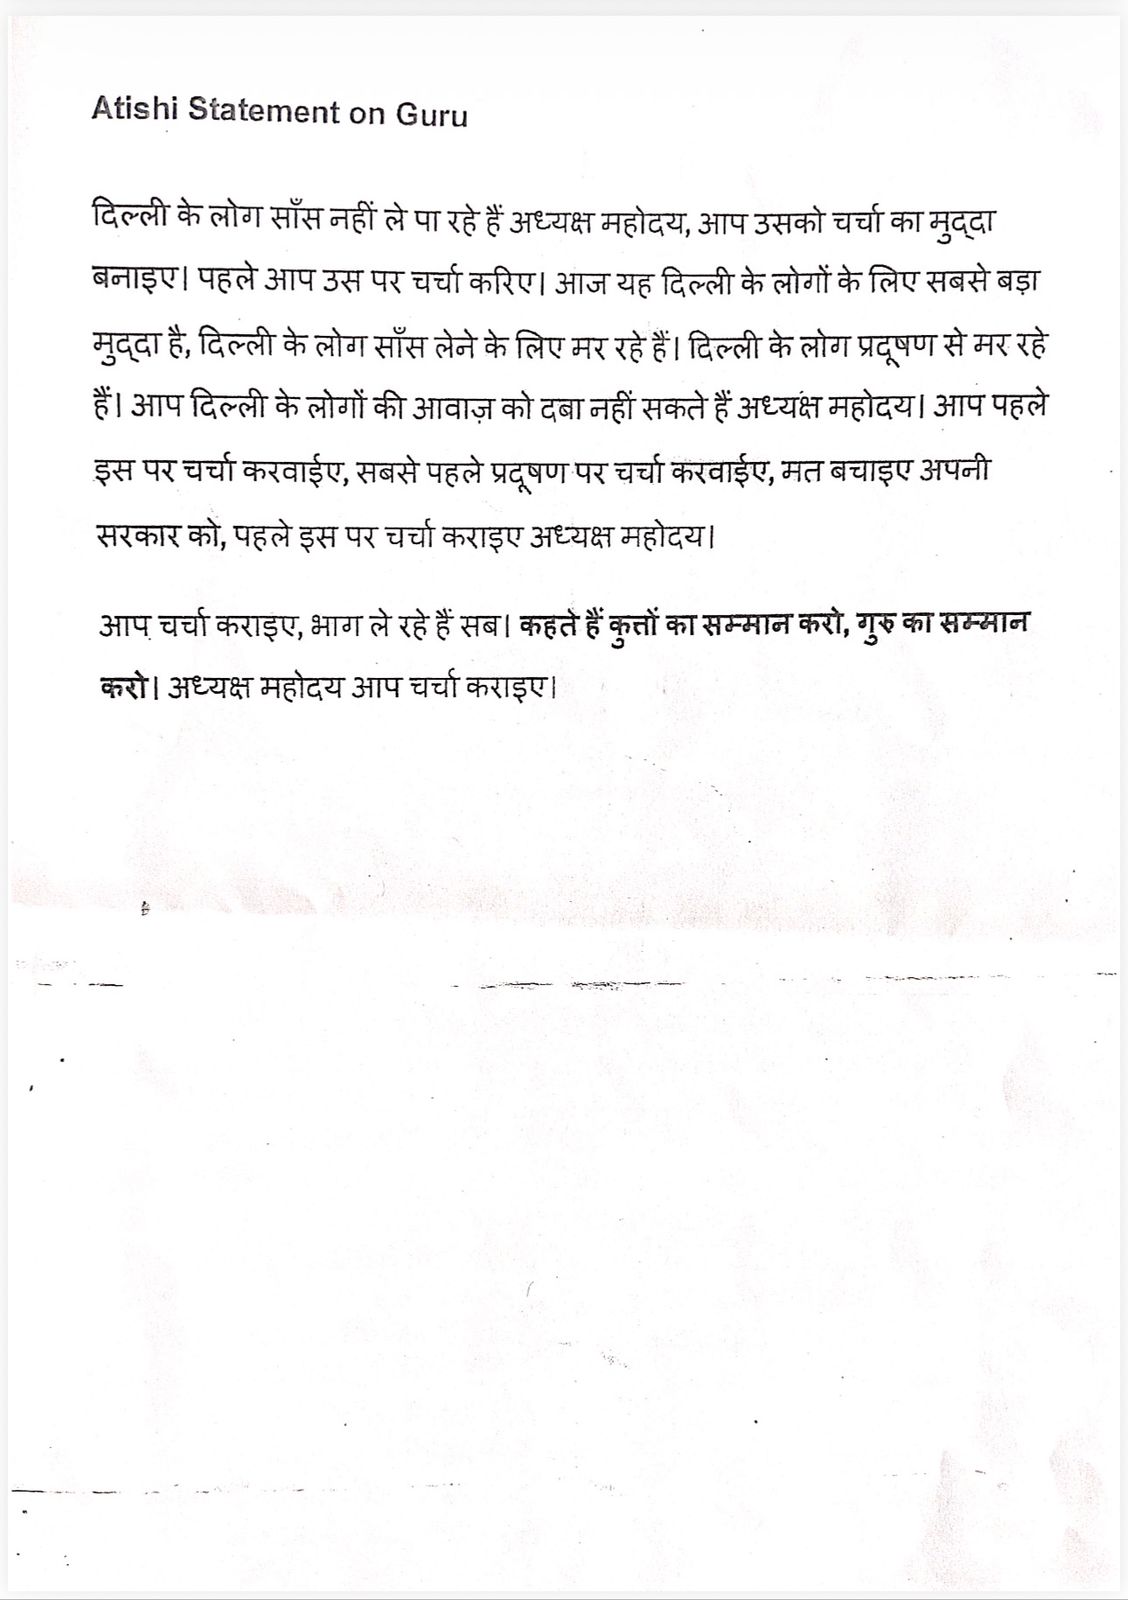 Atishi Statement on Guru
दिल्ली के लोग साँस नहीं ले पा रहे हैं अध्यक्ष महोदय, आप उसको चर्चा का मुद्दा
बनाइए। पहले आप उस पर चर्चा करिए। आज यह दिल्ली के लोगों के लिए सबसे बड़ा
मुद्दा है, दिल्ली के लोग साँस लेने के लिए मर रहे हैं। दिल्ली के लोग प्रदूषण से मर रहे
हैं। आप दिल्ली के लोगों की आवाज़ को दबा नहीं सकते हैं अध्यक्ष महोदय। आप पहले
इस पर चर्चा करवाईए, सबसे पहले प्रदूषण पर चर्चा करवाईए, मत बचाइए अपनी
सरकार को, पहले इस पर चर्चा कराइए अध्यक्ष महोदय।
आप चर्चा कराइए, भाग ले रहे हैं सब। कहते हैं कुत्तों का सम्मान करो, गुरु का सम्मान
करो। अध्यक्ष महोदय आप चर्चा कराइए।